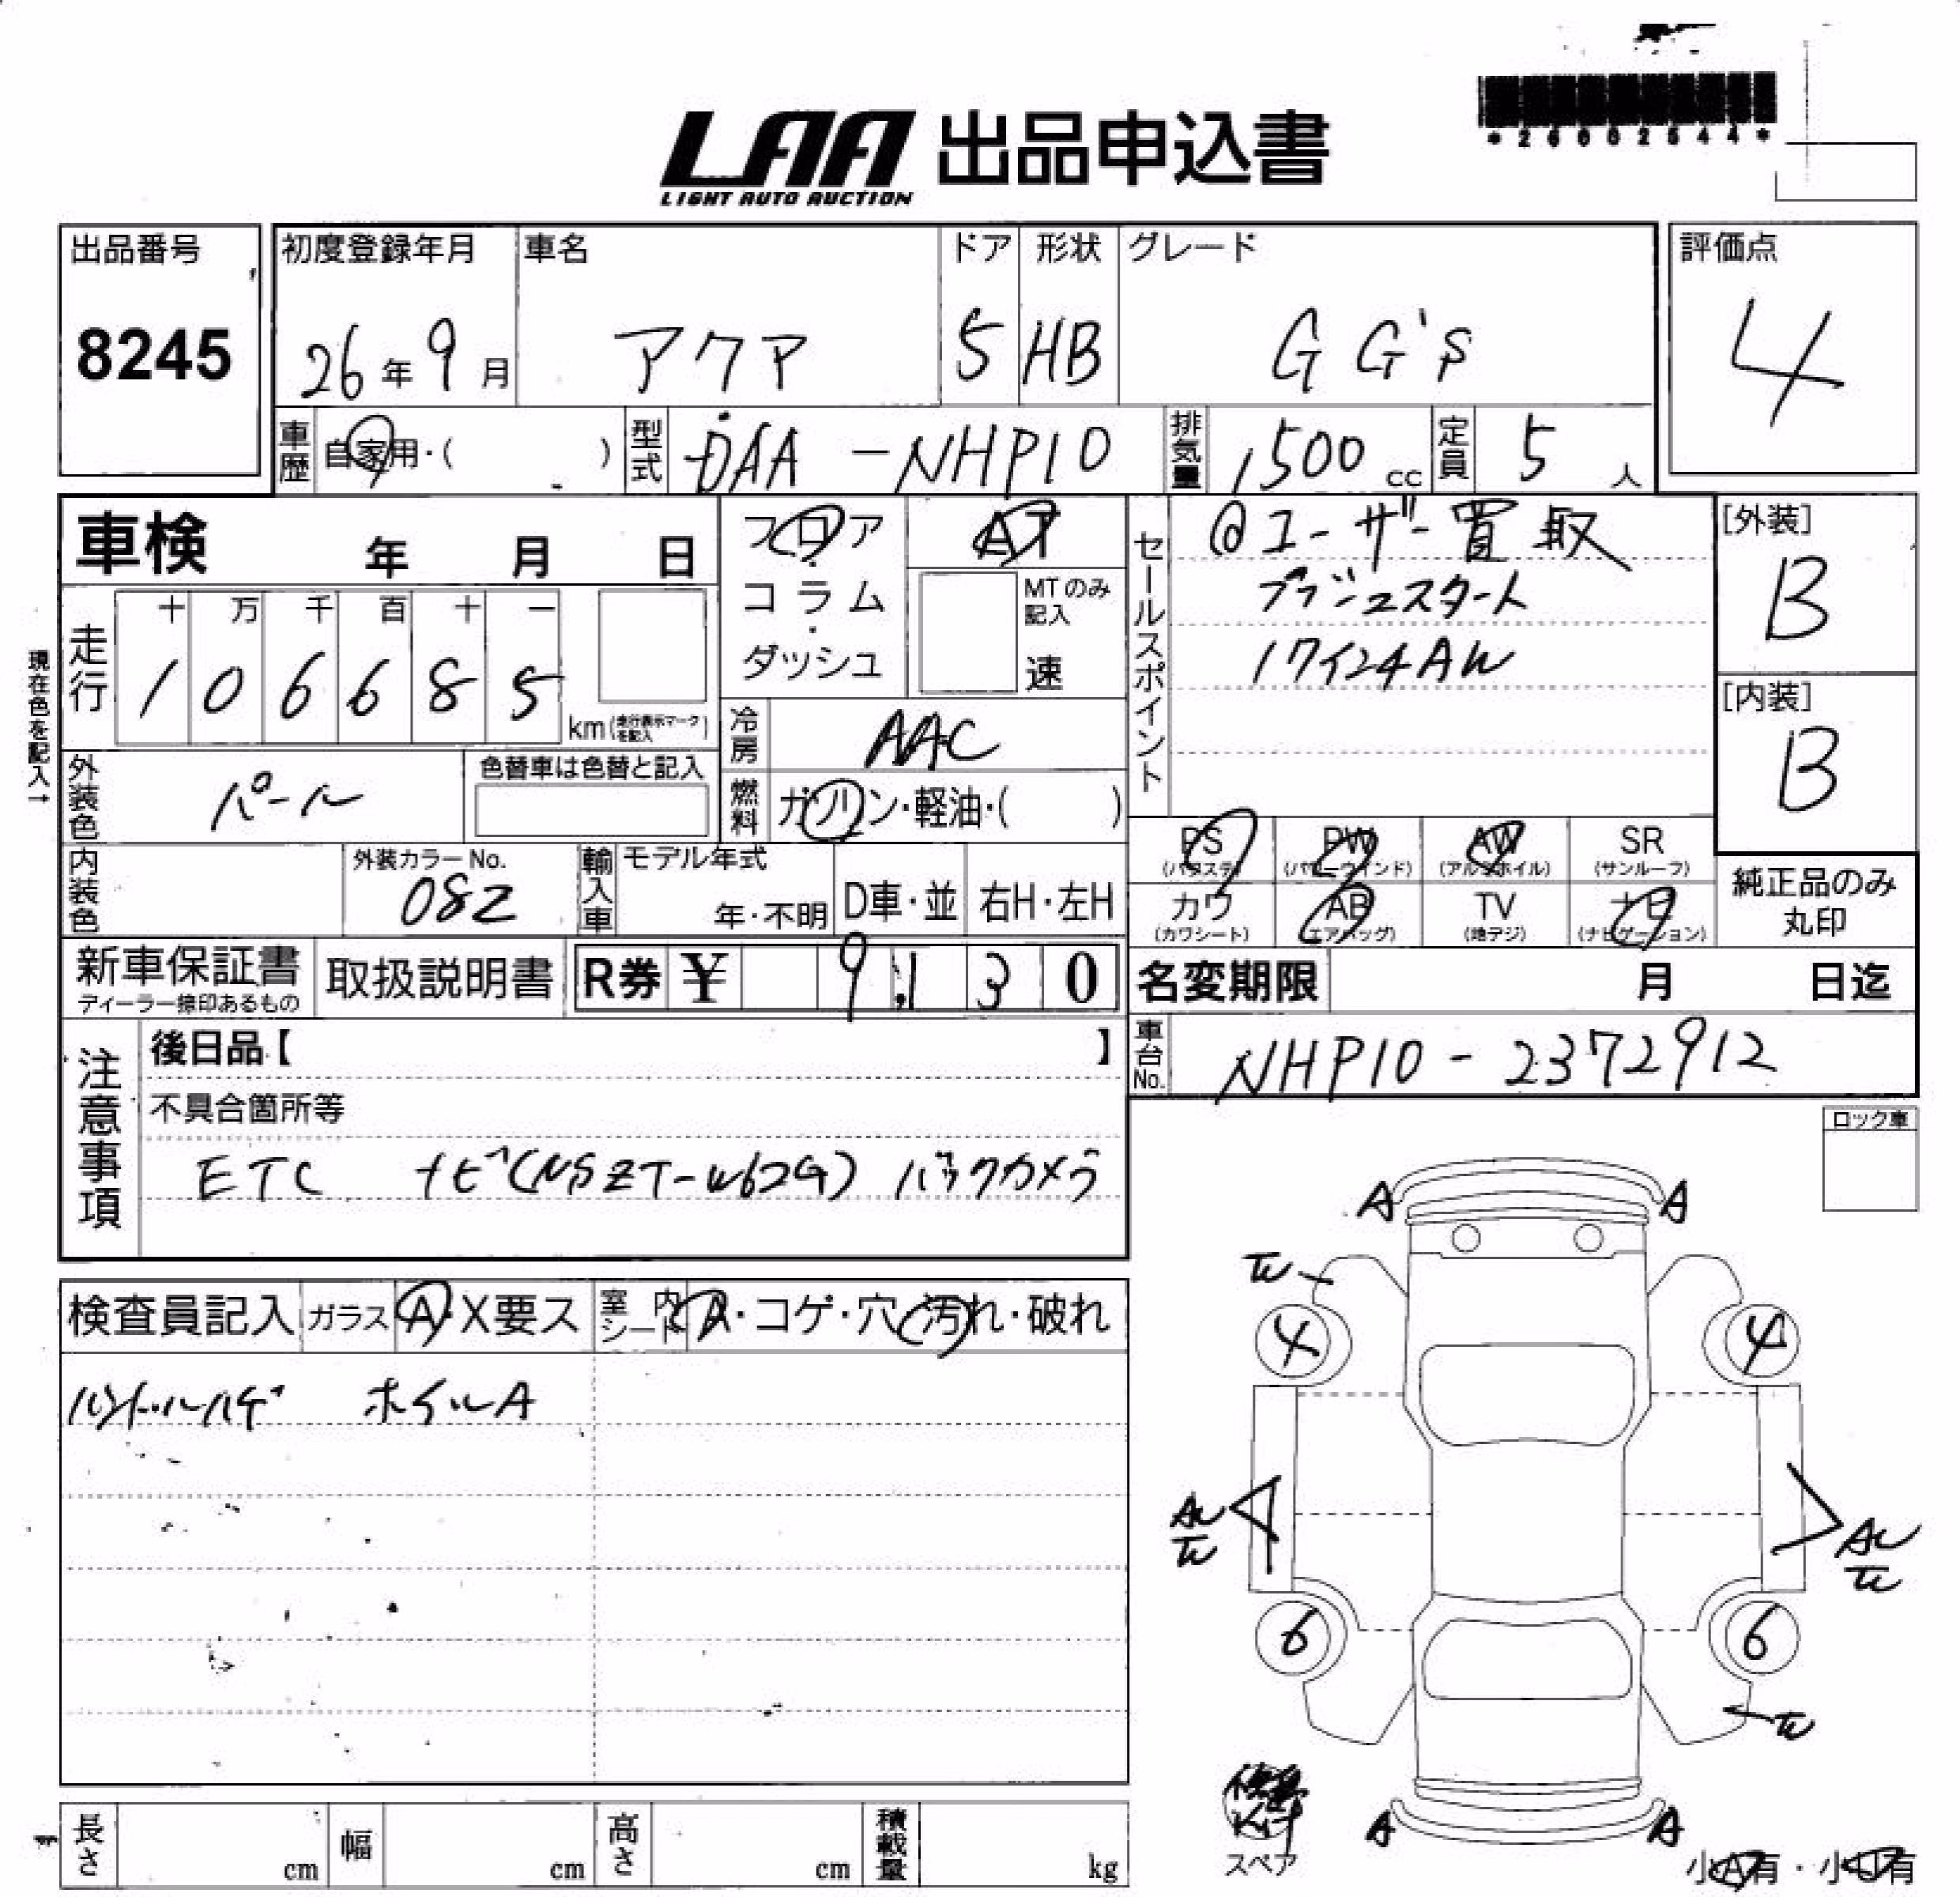 *26002544*
LAA 出品申込書
LIGHT AUTO AUCTION
出品番号
8245
初度登録年月
26年9月
車名
アクア
ドア
5
形状
HB
グレード
G G's
評価点
4
車歴
自家用・( )
型式
DAA-NHP10
排気量
1500cc
定員
5人
車検 年 月 日
フロア・コラム・ダッシュ
AT
MTのみ記入
速
セールスポイント
@ユーザー買取
プッシュスタート
17インチAW
[外装]
B
[内装]
B
現在色を記入→
走行
十 万 千 百 十 一
1 0 6 6 8 5
km(走行表示マークを記入)
冷房
AAC
燃料
ガソリン・軽油・( )
外装色
パール
色替車は色替と記入
内装色
外装カラーNo.
082
輸入車
モデル年式
年・不明
D車・並
右H・左H
PS PW AW SR
(パワステ) (パワーウィンド) (アルミホイル) (サンルーフ)
カワ AB TV ナビ
(カワシート) (エアバッグ) (地デジ) (ナビゲーション)
純正品のみ
丸印
新車保証書
ディーラー捺印あるもの
取扱説明書
R券 ¥ 9,130
名変期限 月 日迄
車台No.
NHP10-2372912
注意事項
後日品【 】
不具合箇所等
ETC ナビ(NSZT-W62G) バックカメラ
ロック車
検査員記入
ガラス
A・X要ス
室内シート
A・コゲ・穴・汚れ・破れ
ハンドルハゲ ホイルA
A A
4 4
6 6
A A
スペア
小A有・小U有
長さ cm
幅 cm
高さ cm
積載量 kg